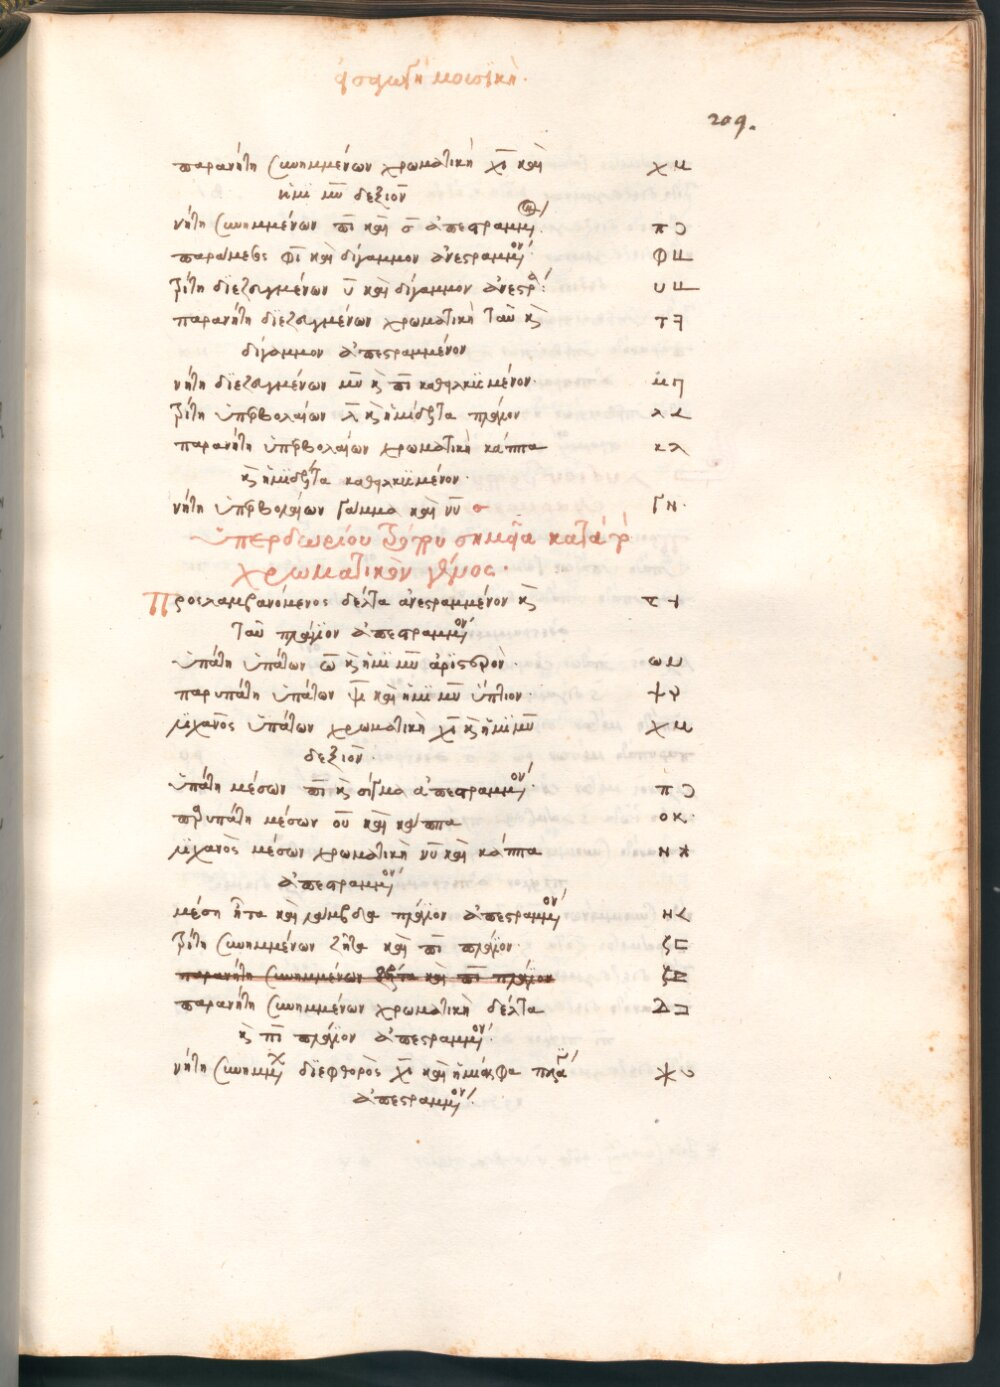 εἰσαγωγὴ μουσικὴ.
209.
παρανήτη συνημμένων χρωματικὴ χῖ καὶ
ἥμι μῦ δεξιὸν
νήτη συνημμένων πῖ καὶ σ ἀπεστραμμ
παράμεσος φῖ καὶ δίγαμμον ἀνεστραμμένον Φ
τρίτη διεζευγμένων υ καὶ δίγαμμον ἀνεστρ υ
παρανήτη διεζευγμένων χρωματικὴ ταῦ κ τ
δίγαμμον ἀπεστραμμένον
νήτη διεζευγμένων μῦ κ πῖ καθειλκυσμένον
τρίτη ὑπερβολαίων λ κ ἡμίδελτα πλάγιον
παρανήτη ὑπερβολαίων χρωματικὴ κάππα κ λ
κ ἡμίδελτα καθειλκυσμένον
νήτη ὑπερβολαίων γάμμα καὶ νῦ Γ Ν
ὑπερδωρίου τρόπου σημεῖα κατὰ τὸ
χρωματικὸν γένος.
Προσλαμβανόμενος δέλτα ἀνεστραμμένον κ
ταῦ πλάγιον ἀπεστραμμένον
ὑπάτη ὑπάτων ω κ ἥμι μῦ ἀριστερὸν ω
παρυπάτη ὑπάτων ψ καὶ ἥμι μῦ ὕπτιον
λίχανος ὑπάτων χρωματικὴ χῖ κ ἥμι μῦ χ
δεξιὸν
ὑπάτη μέσων πῖ κ σίγμα ἀπεστραμμένον π Ͻ
παρυπάτη μέσων οὖ καὶ κάππα ο κ
λίχανος μέσων χρωματικὴ νῦ καὶ κάππα Ν
ἀπεστραμμένον
μέση ἦτα καὶ λάμβδα πλάγιον ἀπεστραμμένον
τρίτη συνημμένων ζῆτα καὶ πῖ πλάγιον ζ ⊏
παρανήτη συνημμένων ζῆτα καὶ πῖ πλάγιον ζ
παρανήτη συνημμένων χρωματικὴ δέλτα Δ ⊐
κ πῖ πλάγιον ἀπεστραμμένον
νήτη συνημμ διεφθορὸς χῖ καὶ ἡμίαλφα
ἀπεστραμμένον